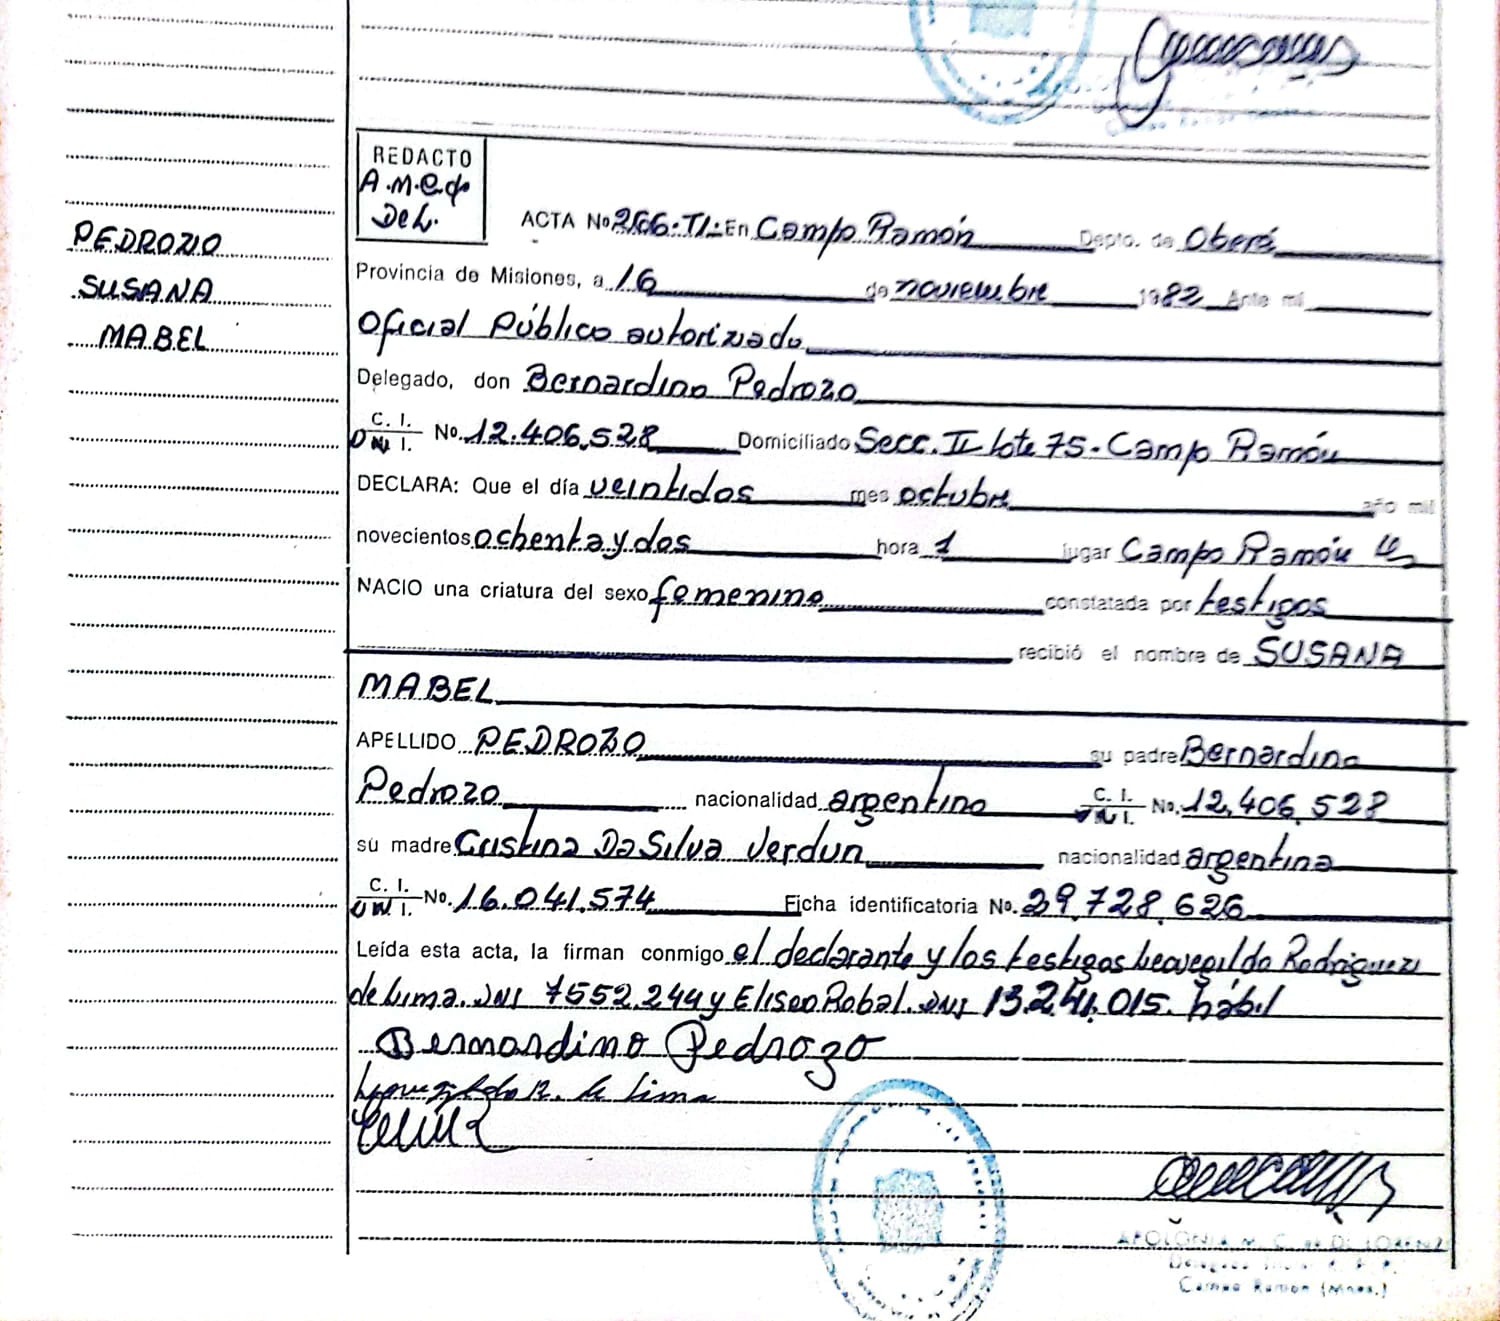 REDACTO
A.M.C. de
De L.
PEDROZO
SUSANA
MABEL
ACTA No 266. T1. En Campo Ramón Depto. de Oberá
Provincia de Misiones, a 16 de noviembre 1982 Ante mi
Oficial Público autorizado
Delegado, don Bernardino Pedrozo
C. I.
DNI. No. 12.406.528 Domiciliado Secc. II lote 75 - Campo Ramón
DECLARA: Que el día veintidos mes octubre año mil
novecientos ochenta y dos hora 1 lugar Campo Ramón
NACIO una criatura del sexo femenino constatada por testigos
recibió el nombre de SUSANA
MABEL
APELLIDO PEDROZO su padre Bernardino
Pedrozo nacionalidad argentino C. I. DNI. No. 12.406.528
su madre Cristina Da Silva Verdun nacionalidad argentina
C. I.
DNI. No. 16.041.574 Ficha identificatoria No. 29.728.626
Leída esta acta, la firman conmigo el declarante y los testigos Rodriguez
de Lima. DNI 7552.244 y Eliseo Robal. DNI 13.241.015. hábil
Bernardino Pedrozo
R. de Lima
APOLONIA M. C. de D. LORENZ
Campo Ramon (Mnes.)